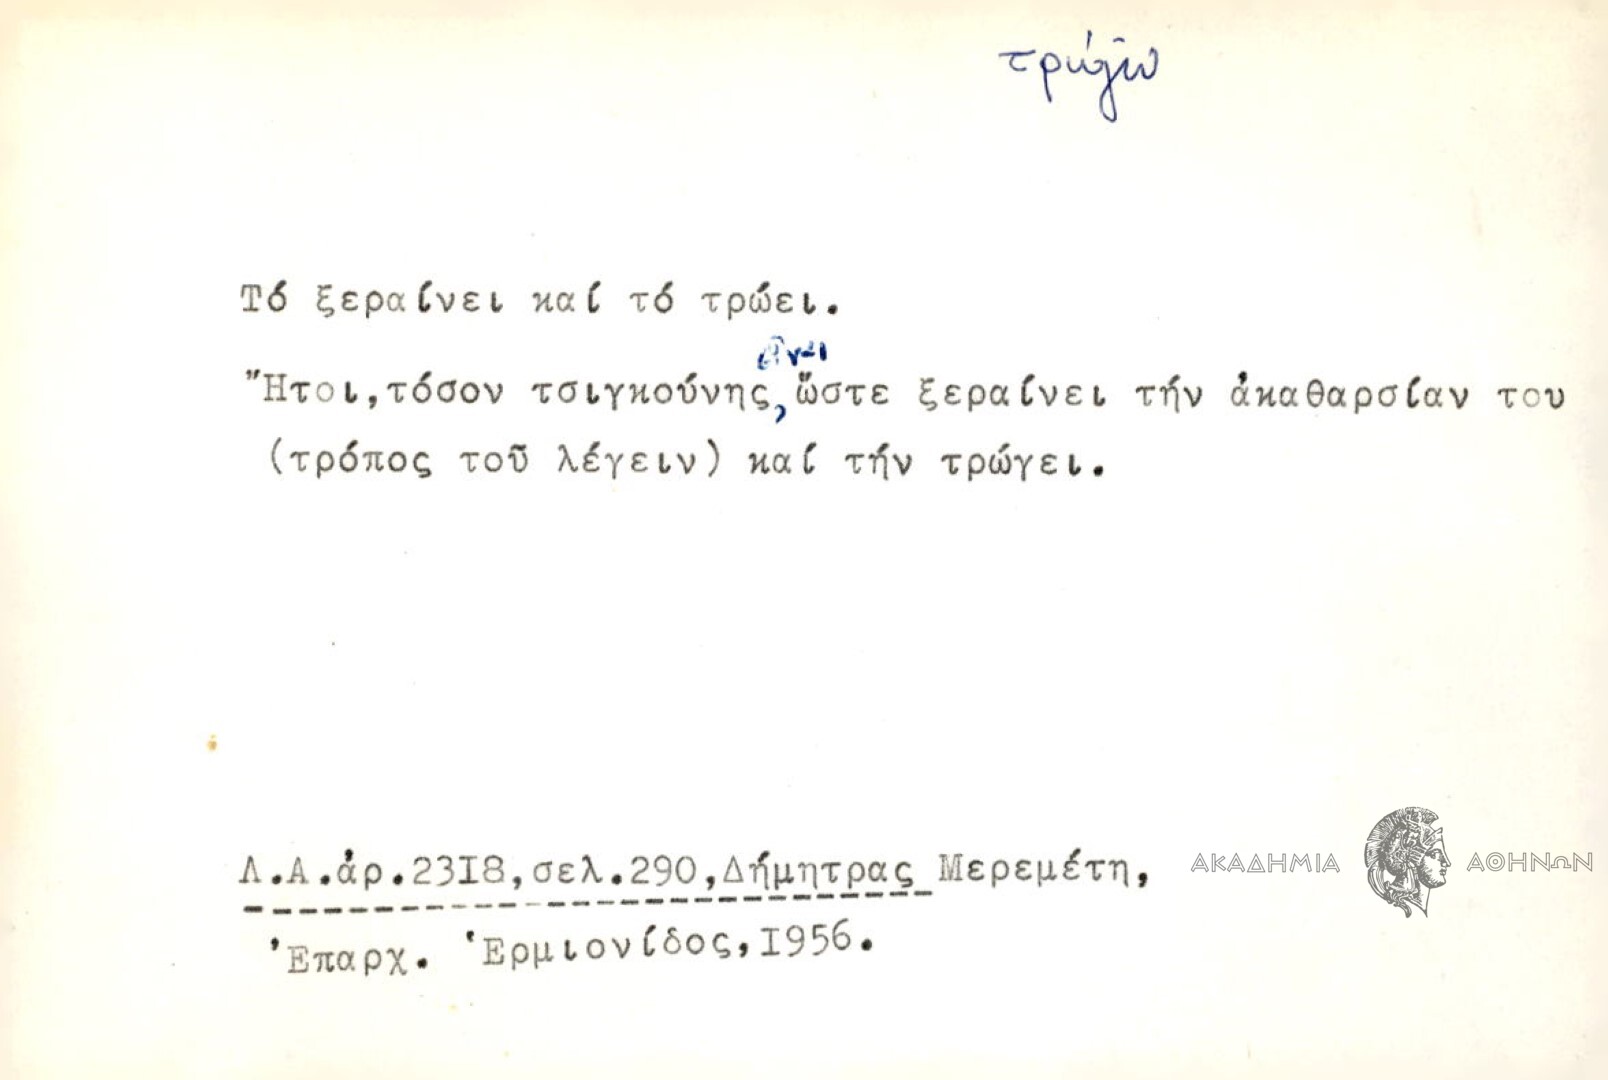 τρώγω
Τό ξεραίνει καί τό τρώει.
εἶναι
Ἤτοι,τόσον τσιγκούνης, ὥστε ξεραίνει τήν ἀκαθαρσίαν του
(τρόπος τοῦ λέγειν) καί τήν τρώγει.
Λ.Α.ἀρ.2318,σελ.290,Δήμητρας Μερεμέτη,
Ἐπαρχ. Ἑρμιονίδος,1956.
ΑΚΑΔΗΜΙΑ ΑΘΗΝΩΝ